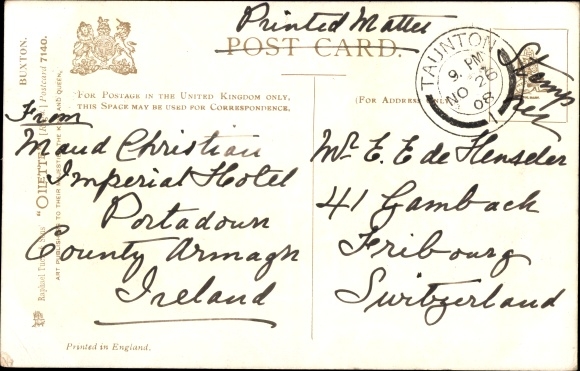 Printed Matter
POST CARD.
FOR POSTAGE IN THE UNITED KINGDOM ONLY,
THIS SPACE MAY BE USED FOR CORRESPONDENCE.
(FOR ADDRESS ONLY.)
TAUNTON
9. PM
NO 26
06
Stamp
BUXTON.
Postcard 7140.
Raphael Tuck & Sons' "OILETTE"
ART PUBLISHERS TO THEIR MAJESTIES THE KING AND QUEEN.
From
Maud Christian
Imperial Hotel
Portadown
County Armagh
Ireland
Mr. E. E de Henseler
41 Gambach
Fribourg
Switzerland
Printed in England.